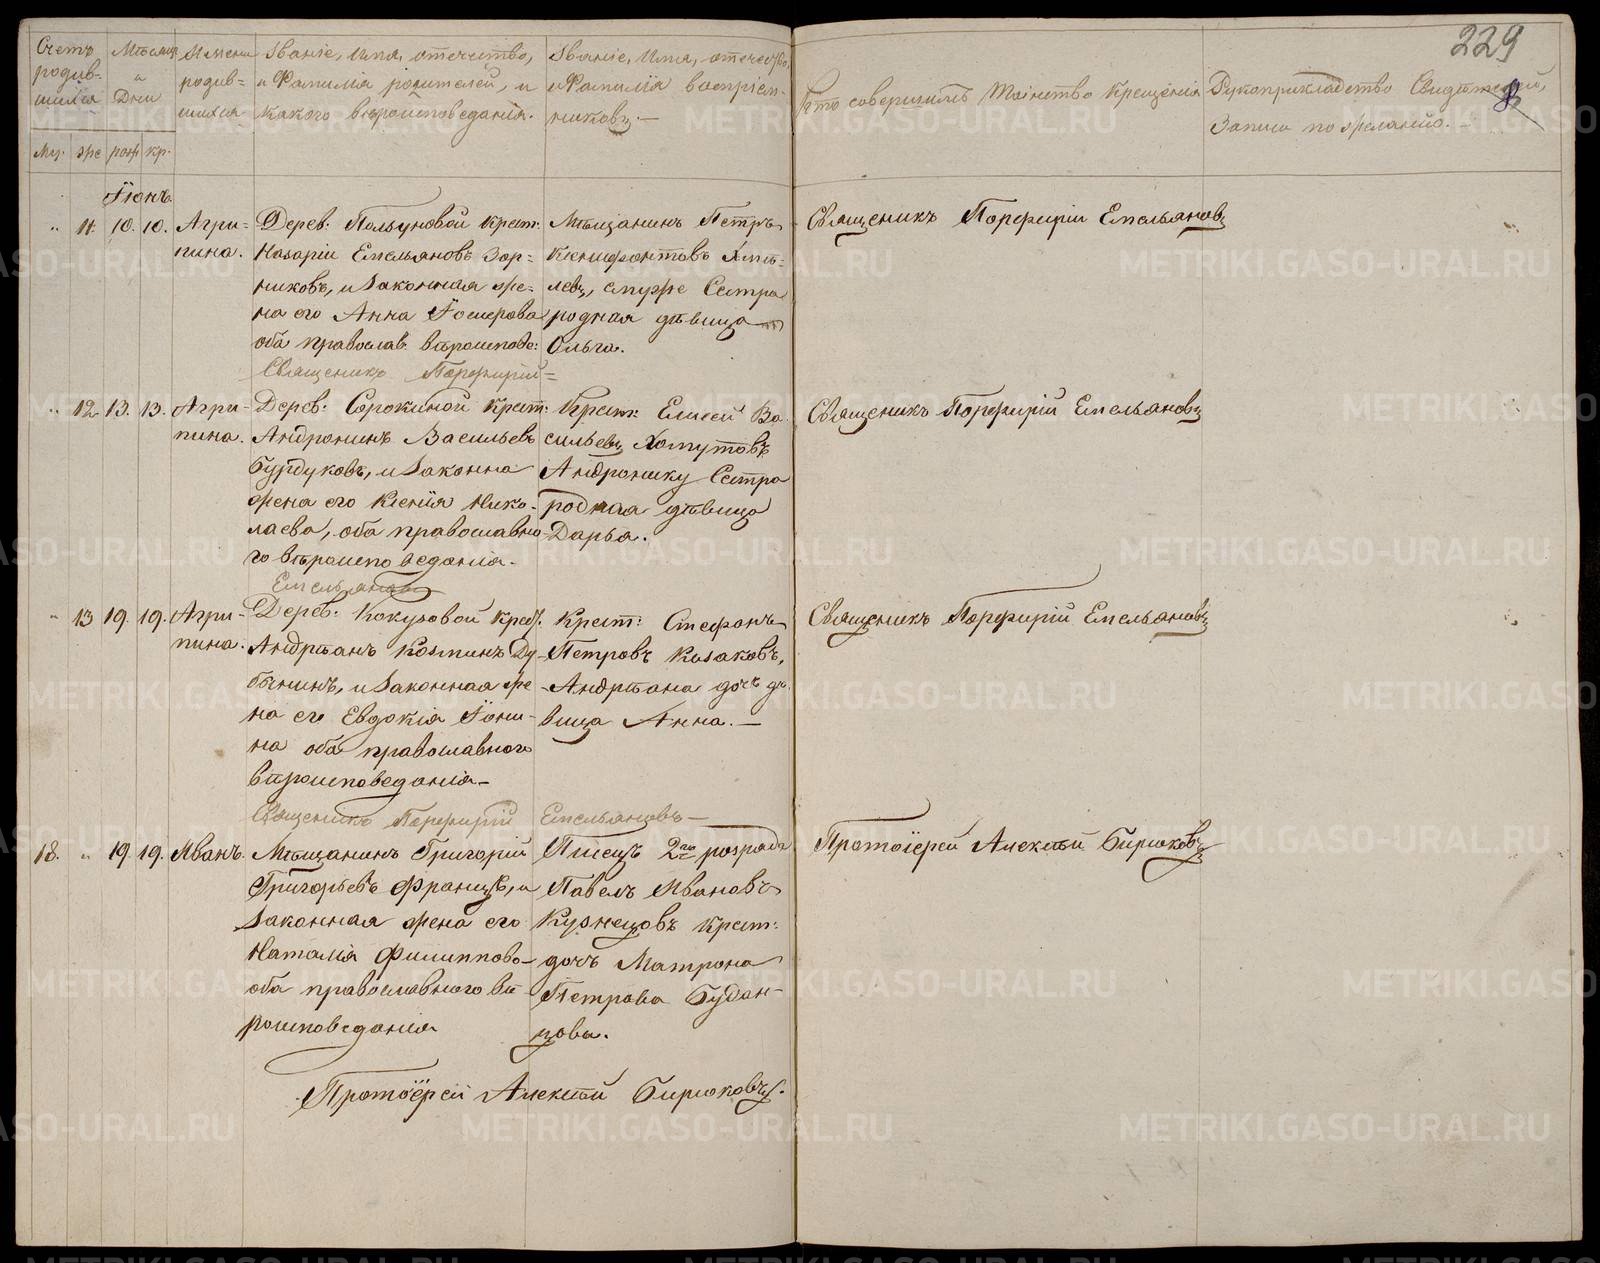 229
Счетъ родив-шихся
Мѣсяцъ и Дни
Имена родив-шихся
Званіе, Имя, отечество, и Фамилія родителей, и какого вѣроисповеданія.
Званіе, Имя, отечество, и Фамилія воспріем-никовъ.—
Кто совершилъ Таинство Крещенія
Рукоприкладство Свидѣтелей, Записи по желанію.—
Му. же рож кр.
Іюнь.
" 11. 10. 10. Агри-
пина.
Дерев: Польуновой крест:
Назарій Емельяновъ Зор-
никовъ, и Законная же-
на его Анна Гоигрова
оба православ. вѣроисповѣ:
Мѣщанинъ Петръ
Ксенифонтовъ Хмы-
левъ, емуже Сестра
родная дѣвица
Ольга.
Священникъ Порфирій Емельяновъ
Священикъ Порфирій=
" 12. 13. 13. Агри-
пина.
Дерев: Сорокиной крест:
Андроникъ Васильевъ
Бурдуковъ, и Законна
жена его Ксенія Нико-
лаева, оба православно-
го вѣроисповеданія.
Крест: Елисей Ва-
сильевъ Хомутовъ
Андронику Сестра
родная дѣвица
Дарья.
Священикъ Порфирій Емельяновъ
Емельяновъ
" 13 19. 19. Агри-
пина.
Дерев: Кокузовой крест.
Андрѣанъ Козминъ Ду-
бынинъ, и Законная же-
на его Евдокія Іони-
на оба православнаго
вѣроисповеданія—
Крест: Стефанъ
Петровъ Казаковъ,
Андрѣана дочь дѣ-
вица Анна.—
Священикъ Порфирій Емельяновъ
Священикъ Порфирій Емельяновъ—
18. " 19. 19. Иванъ.
Мѣщанинъ Григорій
Григорьевъ Францъ, и
Законная жена его
Наталія Филиппова
оба православнаго вѣ-
роисповеданія
Писецъ 2го розряда
Павелъ Ивановъ
Кузнецовъ крест:
дочь Матрона
Петрова Будан-
цова.
Протоіерей Алексѣй Бирюковъ
Протоіерей Алексѣй Бирюковъ.
METRIKI.GASO-URAL.RU